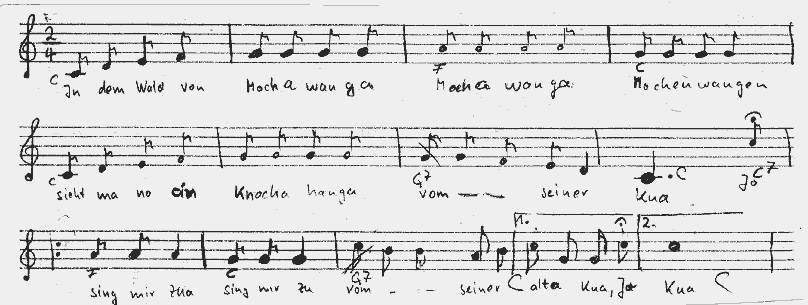 2 4
C F C
In dem Wald von Mocha wanga Mocha wanga Mochenwangen
C G7 C C7
sieht ma no oin Knocha hanga vom — — seiner Kua Jo
1. 2.
F C G7 C C
sing mir zua sing mir zu vom - - - seiner alta Kua, Jo Kua